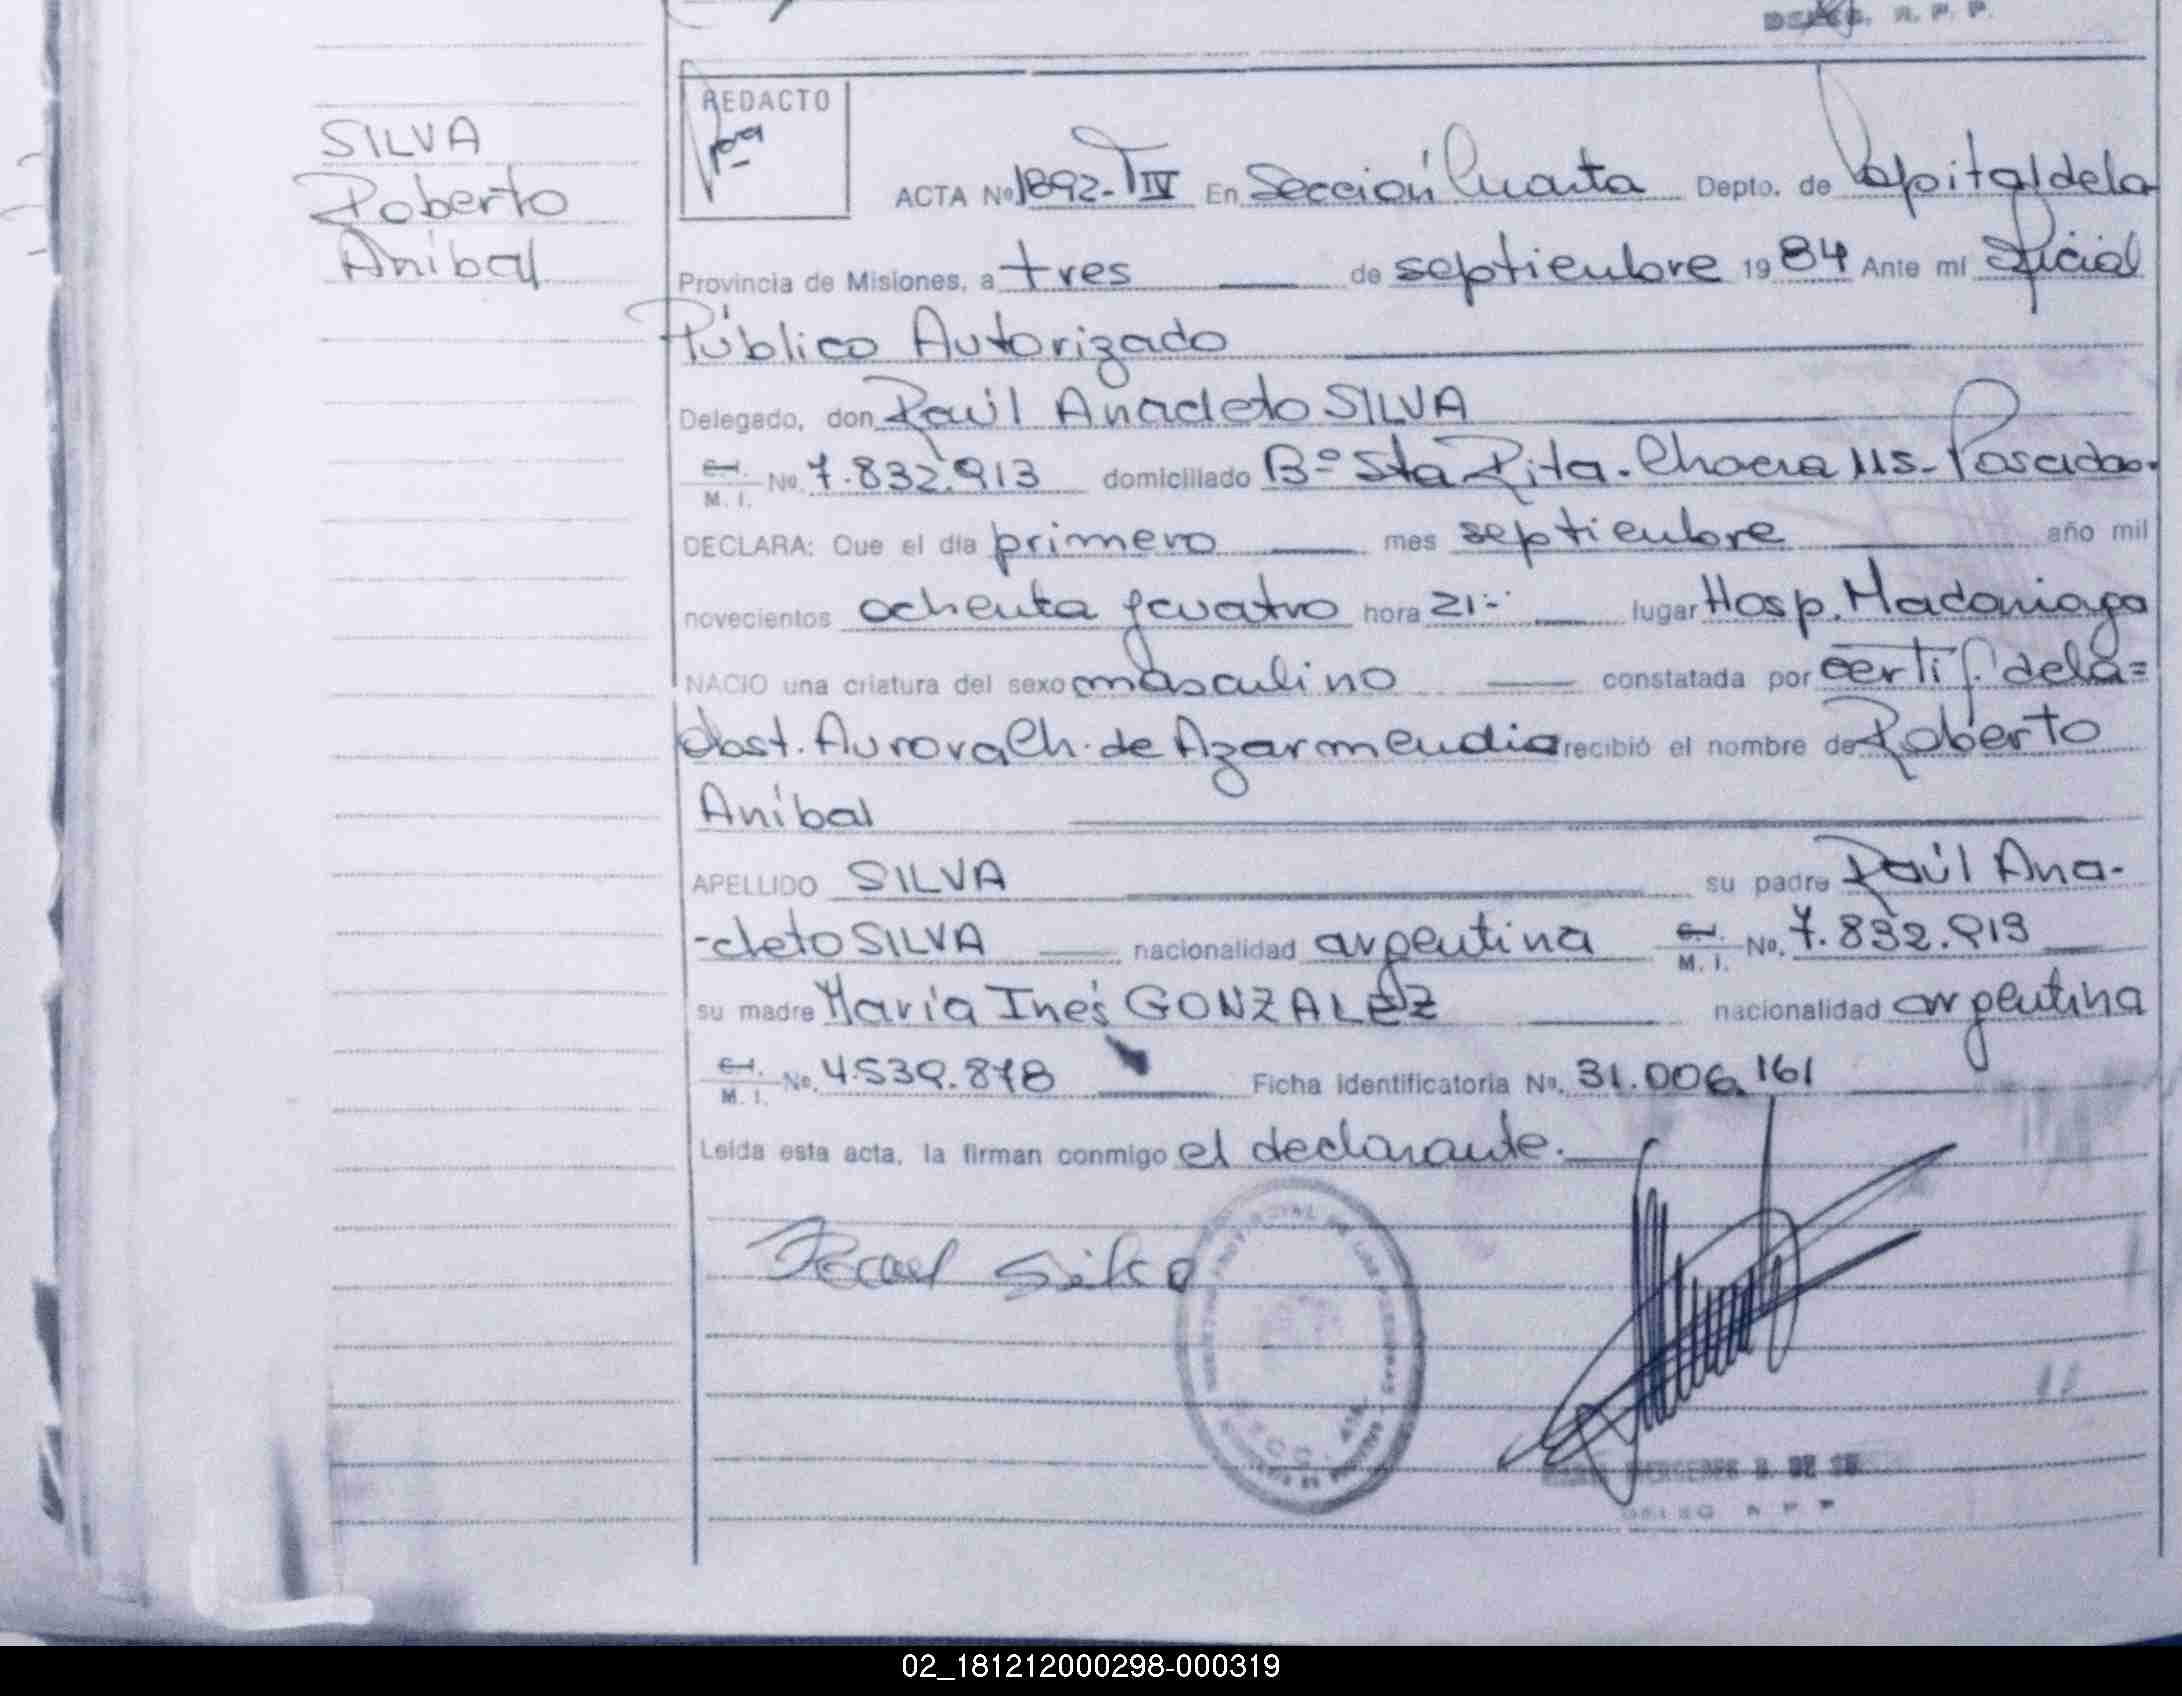 R. P. P.
SILVA
Roberto
Aníbal
REDACTO
ACTA Nº 1892-TIV En Sección Cuarta Depto. de Capital de la
Provincia de Misiones, a tres de septiembre 1984 Ante mí Oficial
Público Autorizado
Delegado, don Raúl Anacleto SILVA
C.I. M. I. No. 7.832.913 domiciliado Bº Sta Rita. Chacra 115- Posadas.
DECLARA: Que el día primero mes septiembre año mil
novecientos ochenta y cuatro hora 21:- lugar Hosp. Madariaga
NACIO una criatura del sexo masculino constatada por certif. de la=
obst. Aurora Ch. de Azarmendia recibió el nombre de Roberto
Aníbal
APELLIDO SILVA su padre Raúl Ana-
-cleto SILVA nacionalidad argentina C.I. M. I. No. 7.832.913
su madre María Inés GONZALEZ nacionalidad argentina
C.I. M. I. No. 4.539.878 Ficha identificatoria No. 31.006.161
Leída esta acta, la firman conmigo el declarante.
Raul Silva
02_181212000298-000319